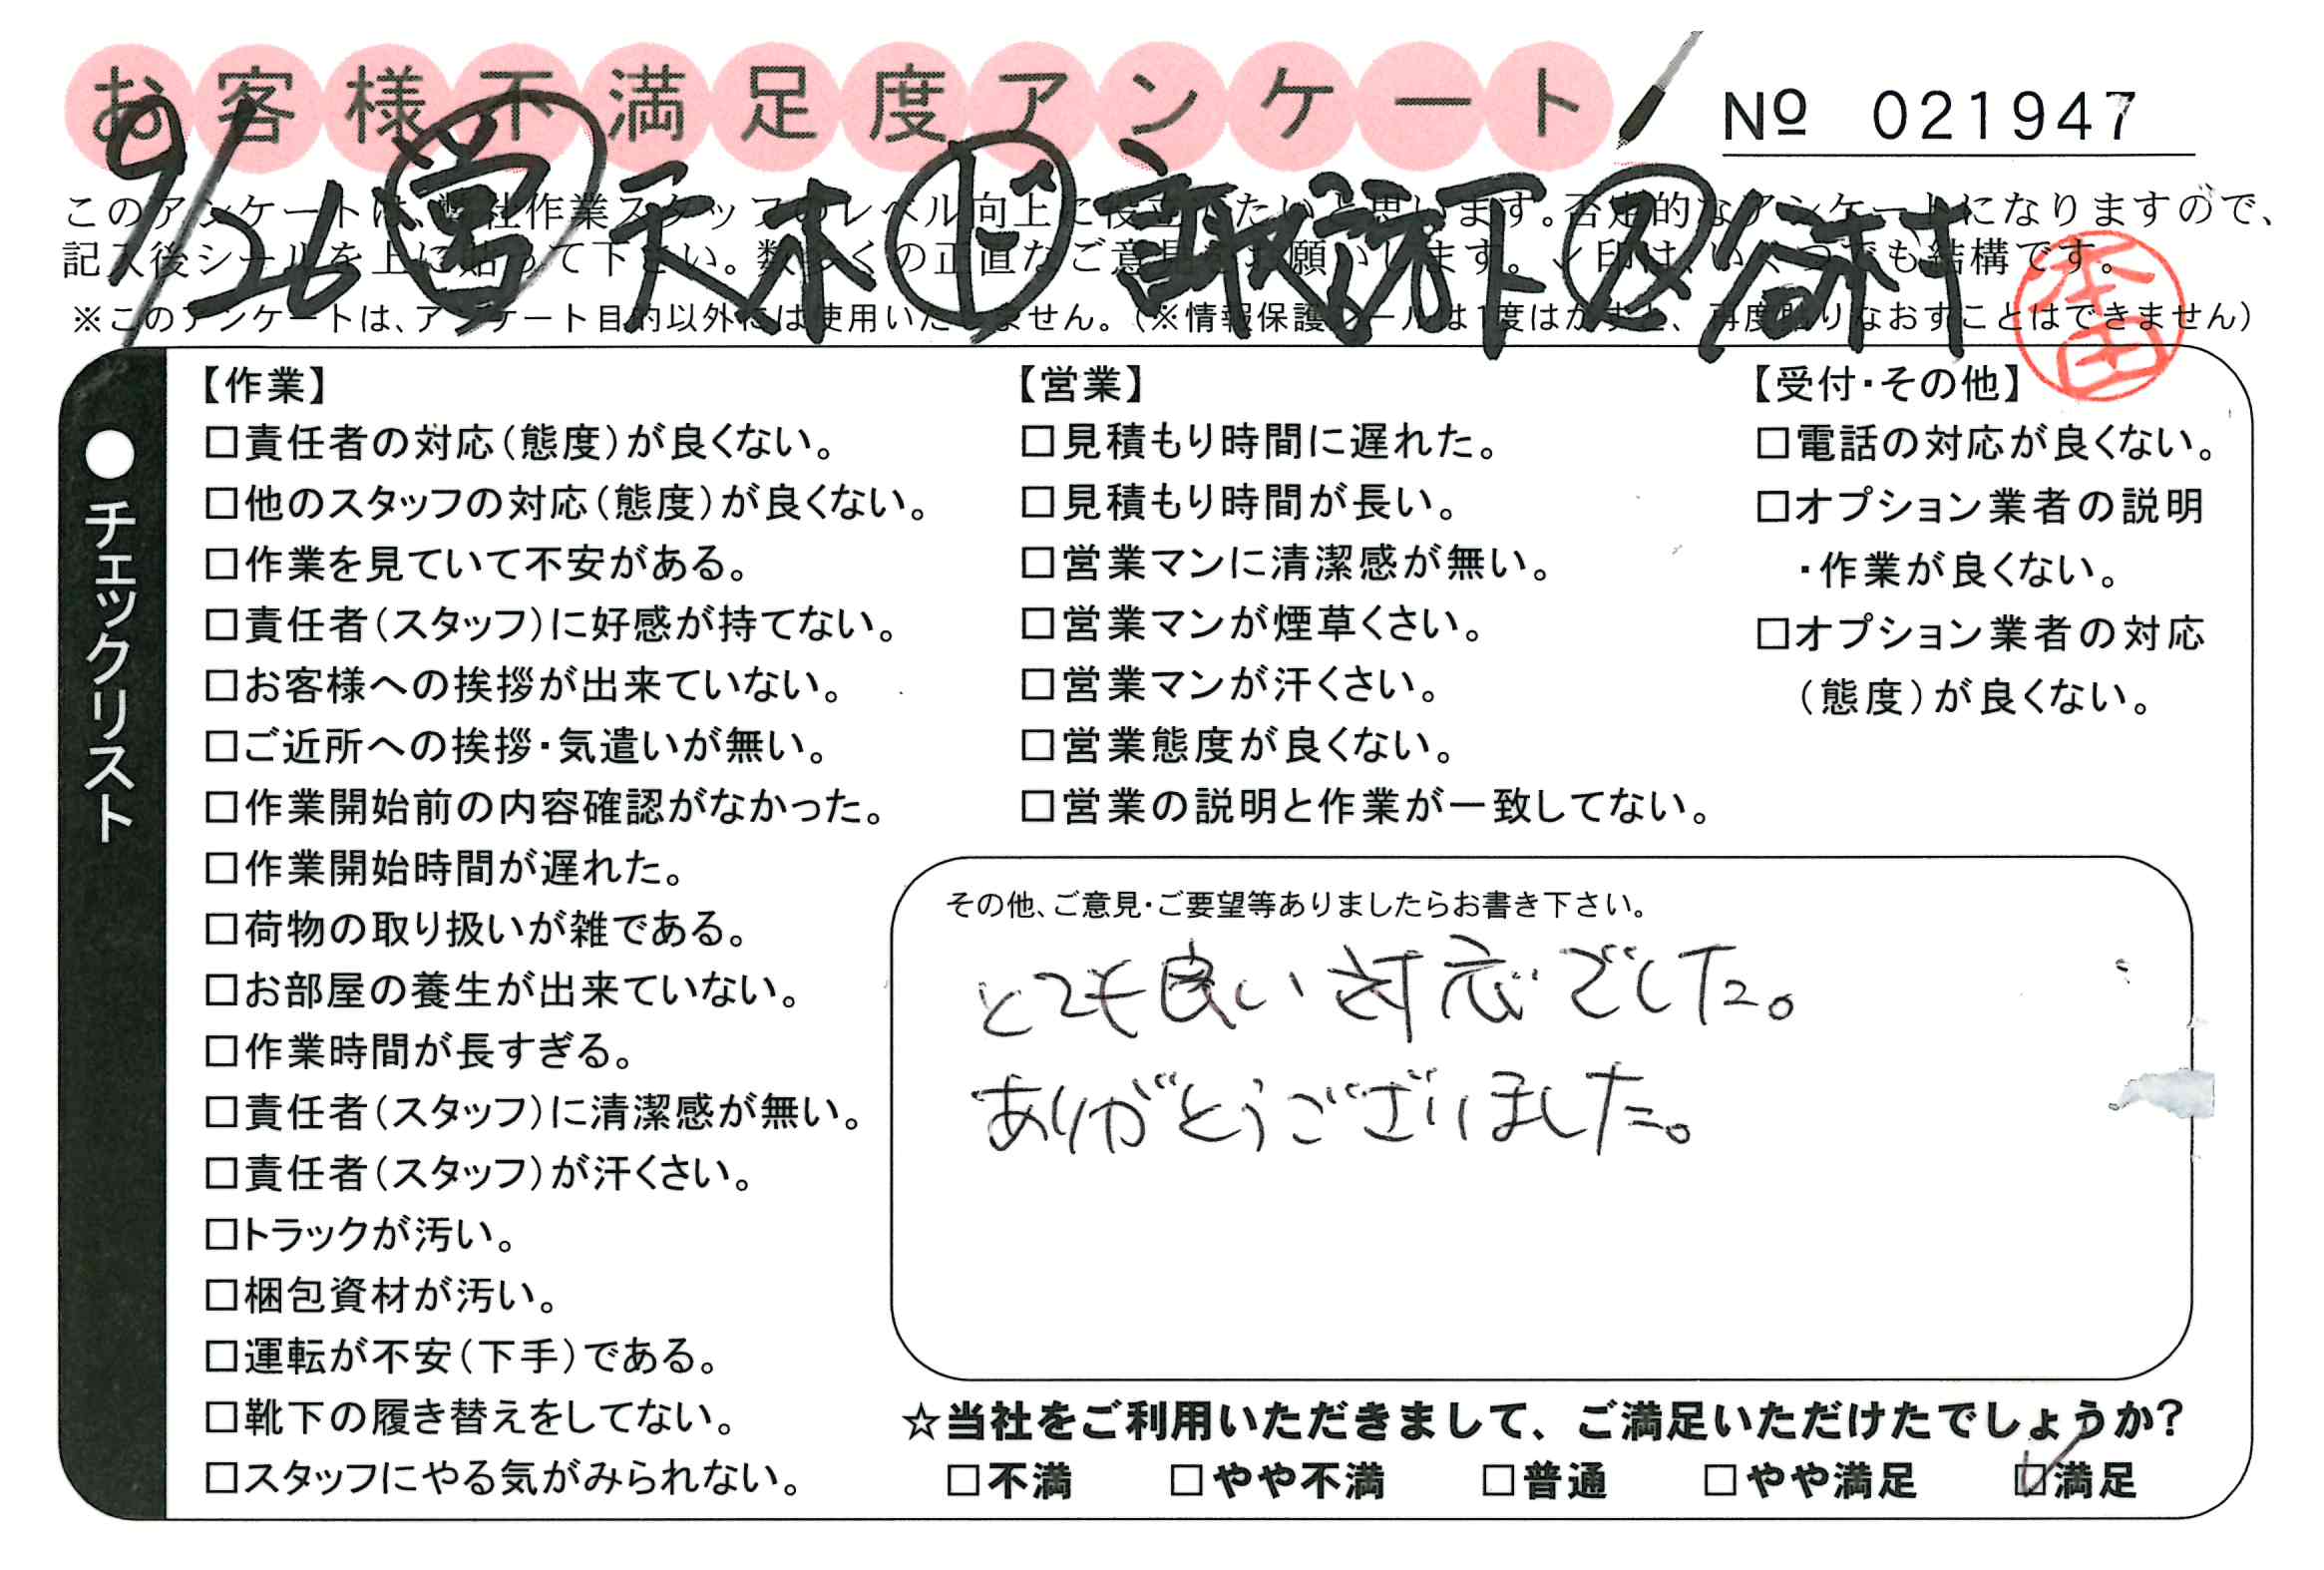 お客様不満足度アンケート
№ 021947
9/26 ㊂営 天木 ㊤ 諏訪下 ㋱ 谷村
このアンケートは、弊社作業スタッフのレベル向上に役立てたいと思います。否定的なアンケートになりますので、
記入後シールを上に貼って下さい。数多くの正直なご意見をお願いします。レ印は、いくつでも結構です。
※このアンケートは、アンケート目的以外には使用いたしません。(※情報保護シールは1度はがすと、再度貼りなおすことはできません)
本田
●チェックリスト
【作業】
□責任者の対応(態度)が良くない。
□他のスタッフの対応(態度)が良くない。
□作業を見ていて不安がある。
□責任者(スタッフ)に好感が持てない。
□お客様への挨拶が出来ていない。
□ご近所への挨拶・気遣いが無い。
□作業開始前の内容確認がなかった。
□作業開始時間が遅れた。
□荷物の取り扱いが雑である。
□お部屋の養生が出来ていない。
□作業時間が長すぎる。
□責任者(スタッフ)に清潔感が無い。
□責任者(スタッフ)が汗くさい。
□トラックが汚い。
□梱包資材が汚い。
□運転が不安(下手)である。
□靴下の履き替えをしてない。
□スタッフにやる気がみられない。
【営業】
□見積もり時間に遅れた。
□見積もり時間が長い。
□営業マンに清潔感が無い。
□営業マンが煙草くさい。
□営業マンが汗くさい。
□営業態度が良くない。
□営業の説明と作業が一致してない。
【受付・その他】
□電話の対応が良くない。
□オプション業者の説明
・作業が良くない。
□オプション業者の対応
(態度)が良くない。
その他、ご意見・ご要望等ありましたらお書き下さい。
とても良い対応でした。
ありがとうございました。
☆当社をご利用いただきまして、ご満足いただけたでしょうか?
□不満 □やや不満 □普通 □やや満足 ☑満足